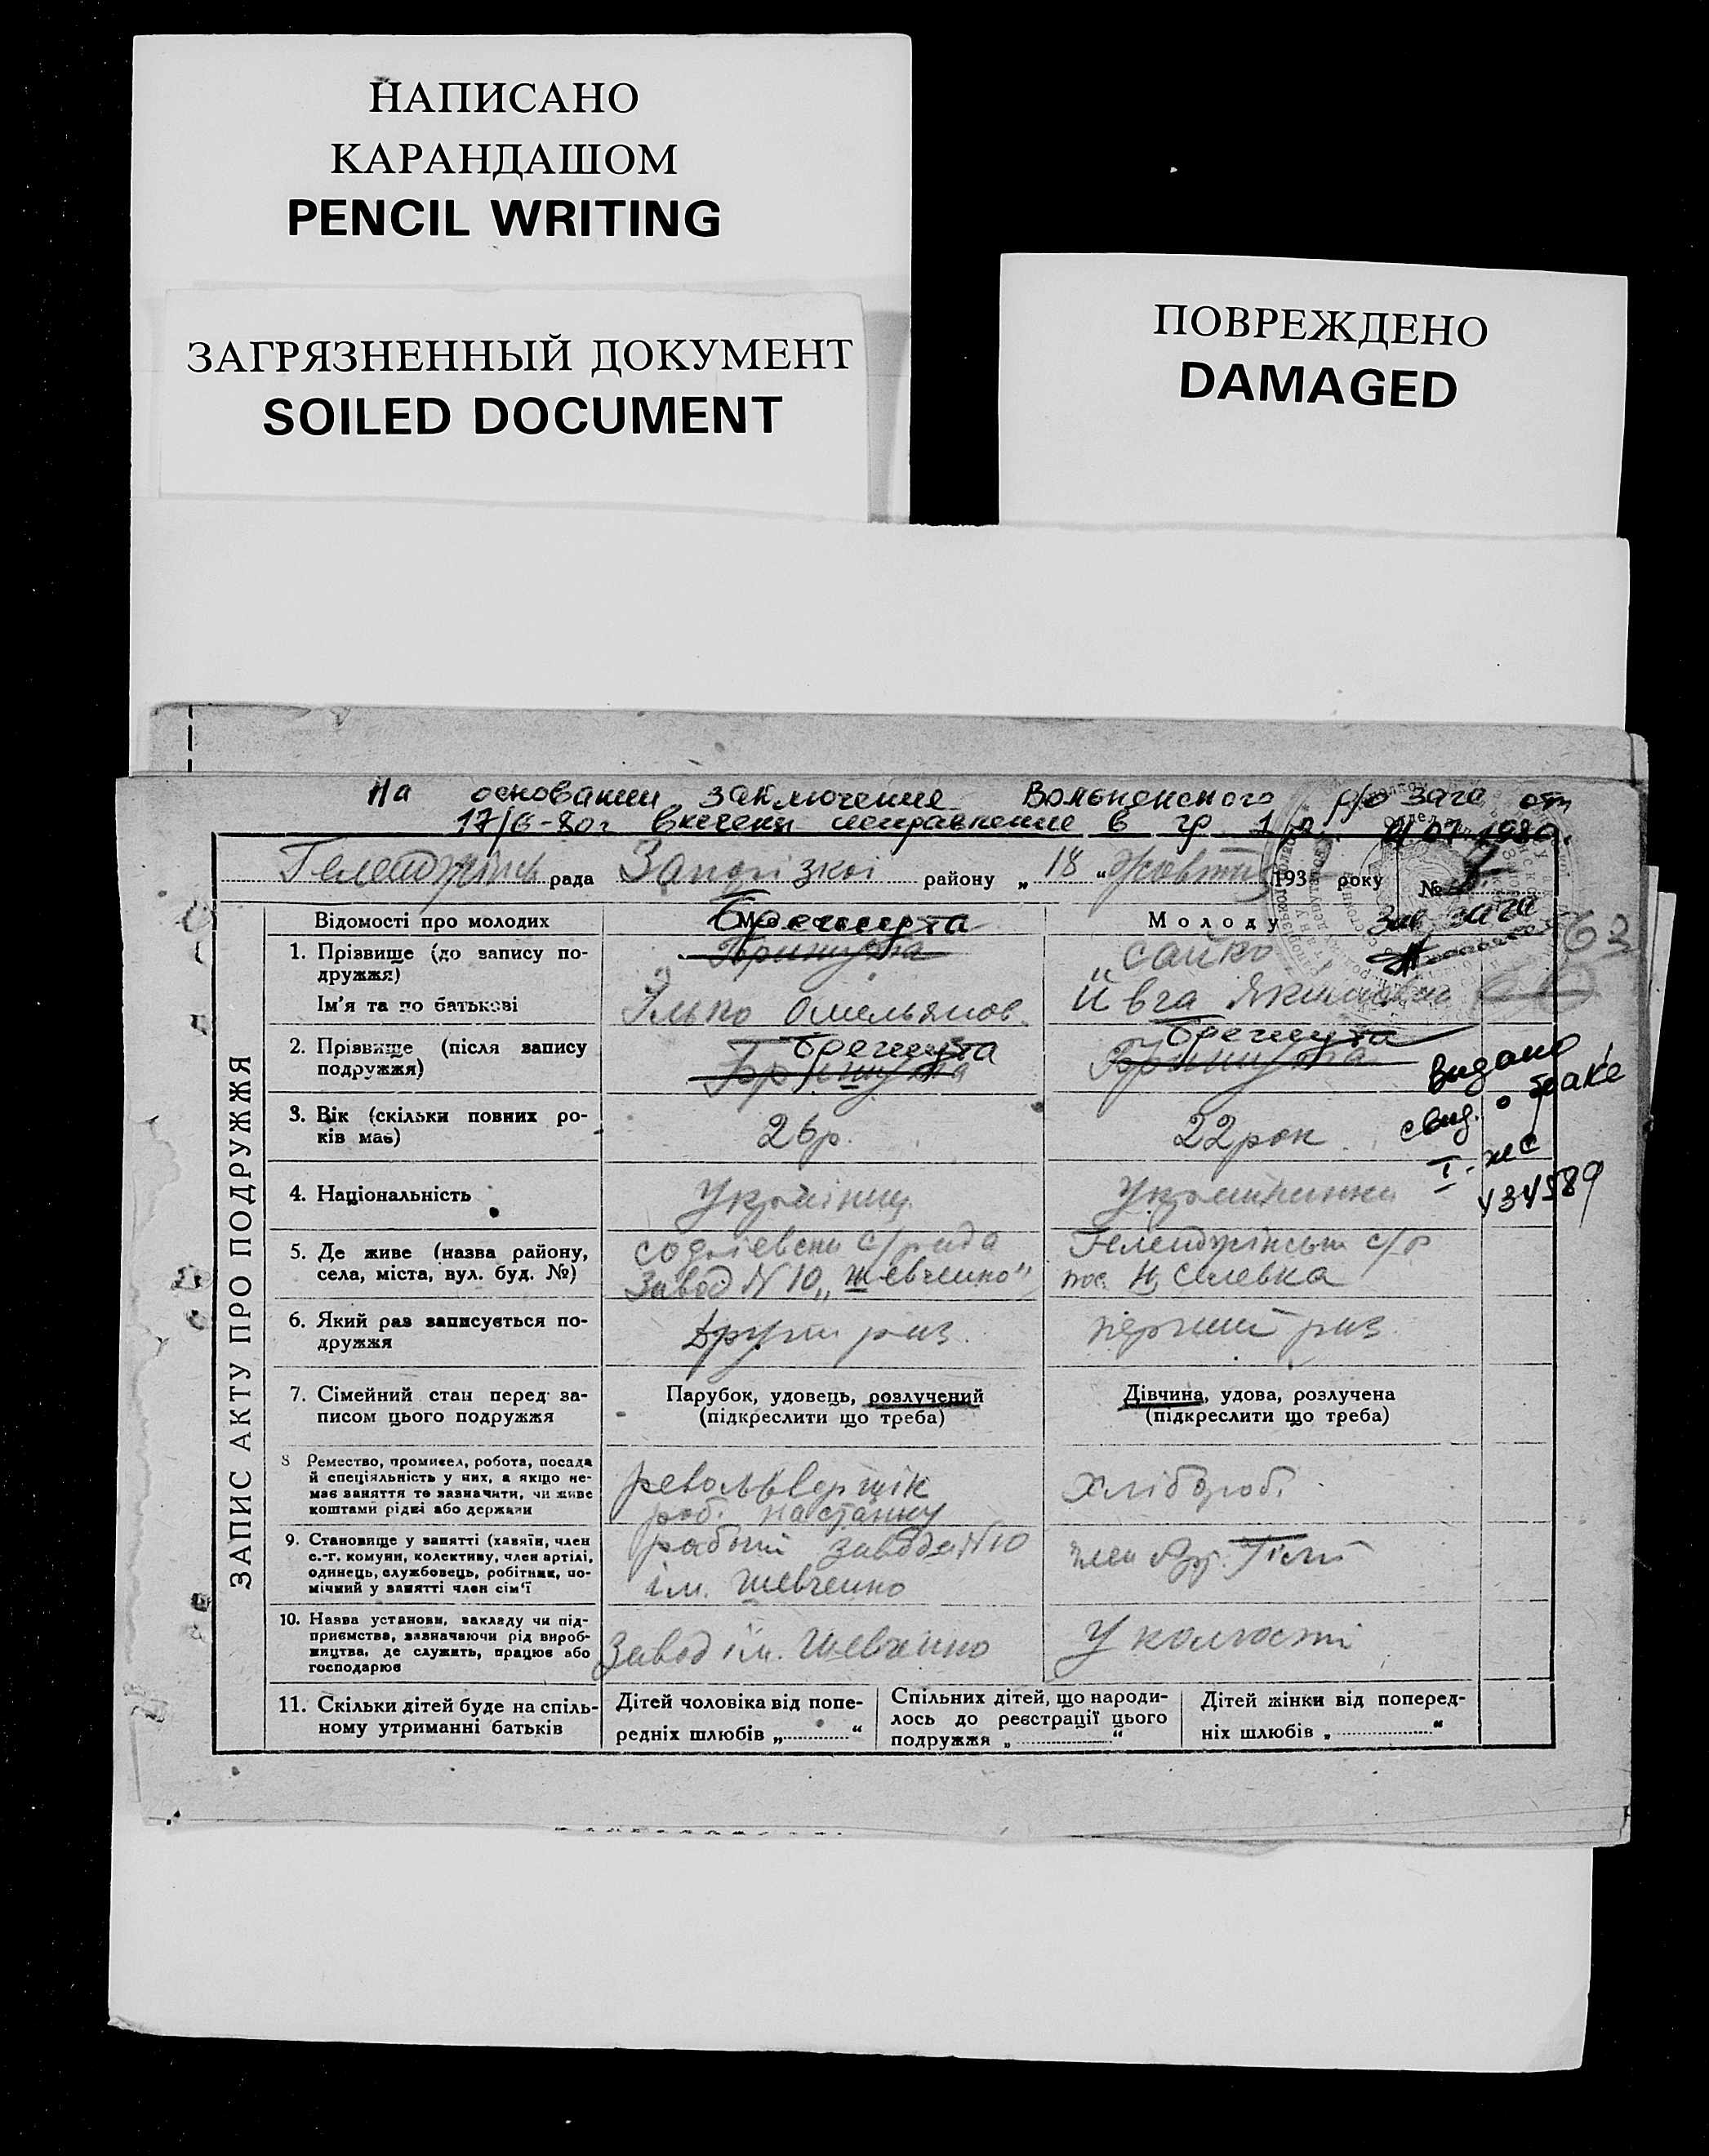 НАПИСАНО
КАРАНДАШОМ
PENCIL WRITING
ЗАГРЯЗНЕННЫЙ ДОКУМЕНТ
SOILED DOCUMENT
ПОВРЕЖДЕНО
DAMAGED
На основании заключения Вольнянского р/о загс от
17/6-80г внесены исправление в гр 1,2.
рада Запорізкої району „ 18 “ Жовтня 193 року №
ЗАПИС АКТУ ПРО ПОДРУЖЖЯ
Відомості про молодих
Молоду
Зав. загс
63
1. Прізвище (до запису по-
дружжя)
Ім'я та по батькові
Бречешта
Сайко
Ілько Омельянов
Ївга Якимовна
2. Прізвище (після запису
подружжя)
Бречешта
Бречешта
Видано
свид. о браке
I-жс
434589
3. Вік (скільки повних ро-
ків має)
26р.
22 рок
4. Національність
Українец
Українинка
5. Де живе (назва району,
села, міста, вул. буд. №)
Софіевськ с/рада
Завод N 10 „Шевченко"
с/р
пос. Н.
6. Який раз записується по-
дружжя
Другий раз.
перший раз
7. Сімейний стан перед за-
писом цього подружжя
Парубок, удовець, розлучений
(підкреслити що треба)
Дівчина, удова, розлучена
(підкреслити що треба)
8 Ремество, промисел, робота, посада
й спеціяльність у них, а якщо не-
має заняття то зазначити, чи живе
коштами рідні або держави
револьвершік
роб. на станку
Хлібороб.
9. Становище у занятті (хазяїн, член
с.-г. комуни, колективу, член артілі,
одинець, службовець, робітник, по-
мічний у занятті член сім'ї
рабочи завода N10
ім. Шевченко
член Артілі
10. Назва установи, закладу чи під-
приємства, зазначаючи рід вироб-
ництва, де служить, працює або
господарює
Завод ім. Шевченко
У колгоспі
11. Скільки дітей буде на спіль-
ному утриманні батьків
Дітей чоловіка від попе-
редніх шлюбів „ “
Спільних дітей, що народи-
лось до реєстрації цього
подружжя „ “
Дітей жінки від поперед-
ніх шлюбів „ “